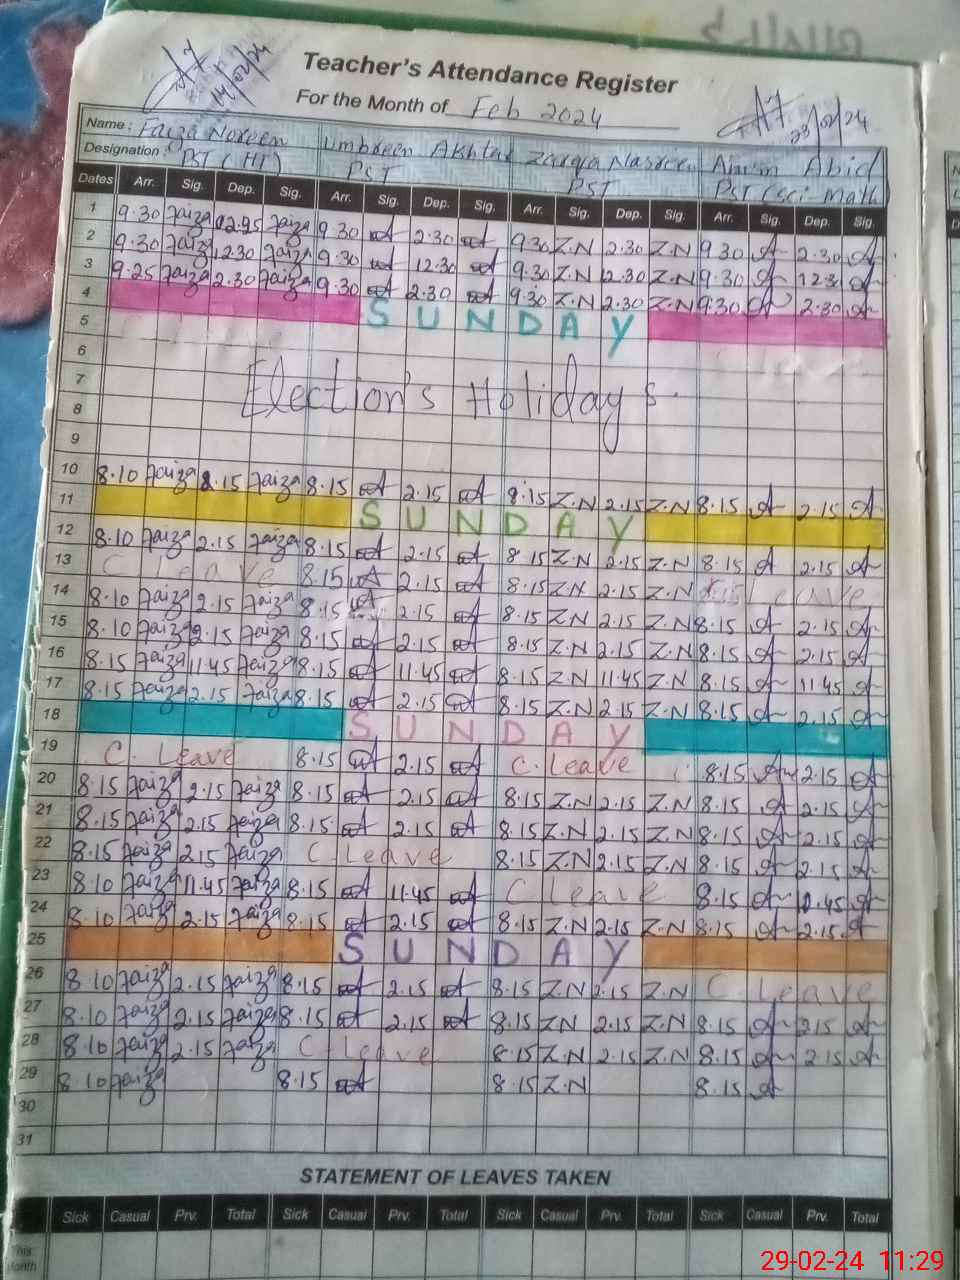 14/02/24
Teacher's Attendance Register
For the Month of Feb 2024
23/02/24
Name : Faiza Noreen Umbreen Akhtar Zarqa Nasreen Anum Abid
Designation : PST (HT) PST PST PST (Sci-Math)
Dates Arr. Sig. Dep. Sig. Arr. Sig. Dep. Sig. Arr. Sig. Dep. Sig. Arr. Sig. Dep. Sig.
1 9.30 Faiza Faiza 9.30 2.30 9.30 Z.N 2.30 Z.N 9.30 2.30
2 9.30 Faiza 12.30 Faiza 9.30 12.30 9.30 Z.N 12.30 Z.N 9.30 12.30
3 9.25 Faiza 2.30 Faiza 9.30 2.30 9.30 Z.N 2.30 Z.N 9.30 2.30
4 SUNDAY
5
6
7 Election's Holidays.
8
9
10 8.10 Faiza 2.15 Faiza 8.15 2.15 8.15 Z.N 2.15 Z.N 8.15 2.15
11 SUNDAY
12 8.10 Faiza 2.15 Faiza 8.15 2.15 8.15 Z.N 2.15 Z.N 8.15 2.15
13 C Leave 8.15 2.15 8.15 Z.N 2.15 Z.N Leave
14 8.10 Faiza 2.15 Faiza 8.15 2.15 8.15 Z.N 2.15 Z.N 8.15 2.15
15 8.10 Faiza 2.15 Faiza 8.15 2.15 8.15 Z.N 2.15 Z.N 8.15 2.15
16 8.15 Faiza 11.45 Faiza 8.15 11.45 8.15 Z.N 11.45 Z.N 8.15 11.45
17 8.15 Faiza 2.15 Faiza 8.15 2.15 8.15 Z.N 2.15 Z.N 8.15 2.15
18 SUNDAY
19 C. Leave 8.15 2.15 C. Leave 8.15 2.15
20 8.15 Faiza 2.15 Faiza 8.15 2.15 8.15 Z.N 2.15 Z.N 8.15 2.15
21 8.15 Faiza 2.15 Faiza 8.15 2.15 8.15 Z.N 2.15 Z.N 8.15 2.15
22 8.15 Faiza 2.15 Faiza C Leave 8.15 Z.N 2.15 Z.N 8.15 2.15
23 8.10 Faiza 11.45 Faiza 8.15 11.45 C Leave 8.15
24 8.10 Faiza 2.15 Faiza 8.15 2.15 8.15 Z.N 2.15 Z.N 8.15 2.15
25 SUNDAY
26 8.10 Faiza 2.15 Faiza 8.15 2.15 8.15 Z.N 2.15 Z.N C. Leave
27 8.10 Faiza 2.15 Faiza 8.15 2.15 8.15 Z.N 2.15 Z.N 8.15 2.15
28 8.10 Faiza 2.15 Faiza C. Leave 8.15 Z.N 2.15 Z.N 8.15 2.15
29 8.10 Faiza 8.15 8.15 Z.N 8.15
30
31
STATEMENT OF LEAVES TAKEN
Sick Casual Prv. Total Sick Casual Prv. Total Sick Casual Prv. Total Sick Casual Prv. Total
This Month
29-02-24 11:29